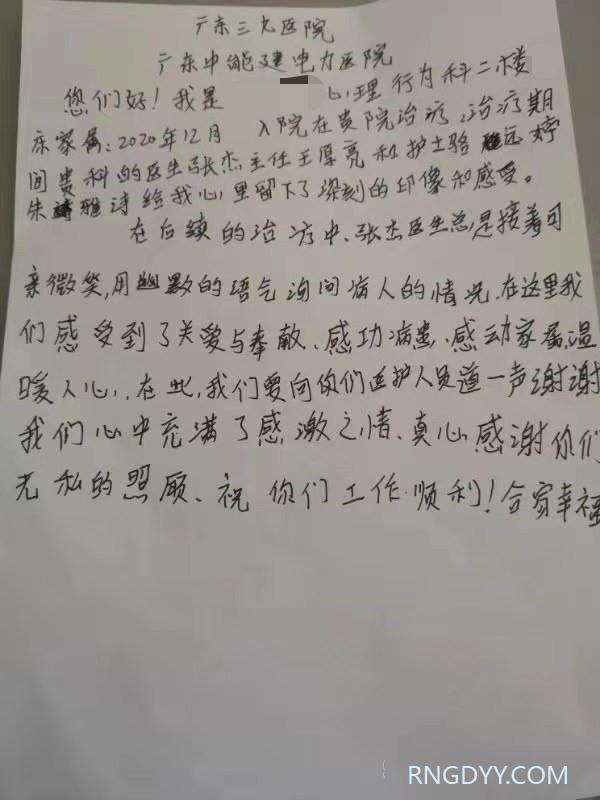 广东三九医院
广东中能建电力医院
您们好！我是 心理行为科二楼
床家属：2020年12月 入院在贵院治疗，治疗期
间贵科的医生张杰主任王厚亮和护士骆远婷
朱雅诗给我心里留下了深刻的印像和感受。
在后续的治疗中、张杰医生总是接着可
亲微笑，用幽默的语气询问病人的情况、在这里我
们感受到了关爱与奉献、感动病患、感动家属，温
暖人心、在此，我们要向你们医护人员道一声谢谢
我们心中充满了感激之情、真心感谢你们
无私的照顾、祝你们工作顺利！合家幸福
RNGDYY.COM